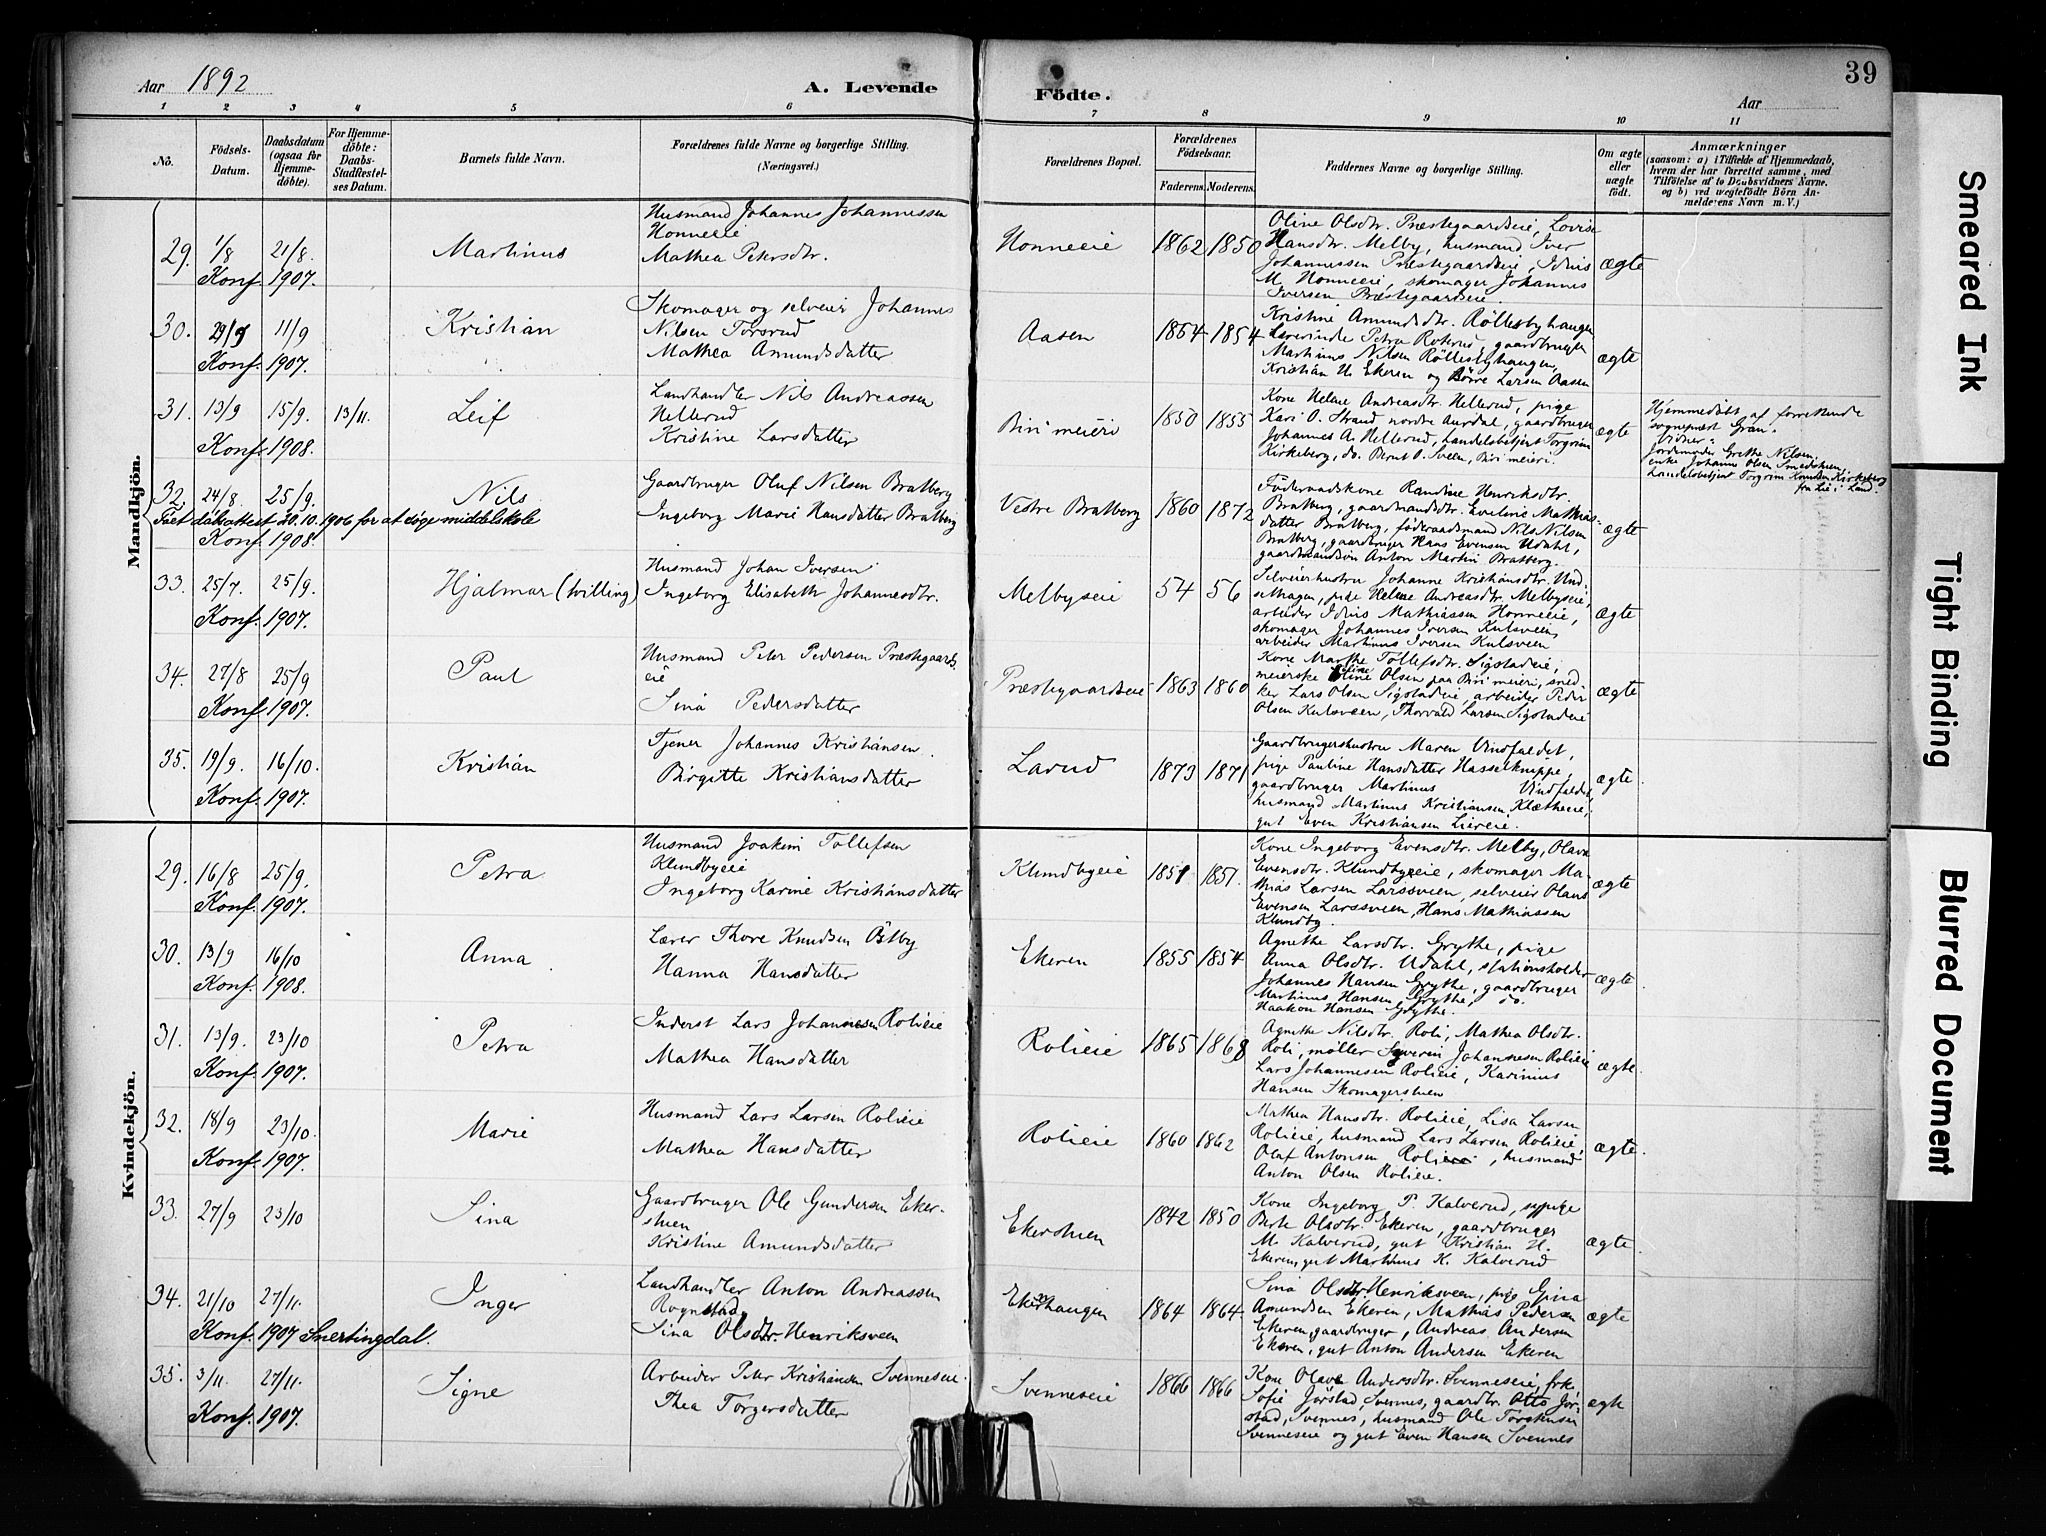 39
Aar 1892
A. Levende
Födte.
Aar
1 2 3 4 5 6 7 8 9 10 11
No.
Födsels-Datum.
Daabsdatum (ogsaa for Hjemmedöbte).
For Hjemmedöbte: Daabs-Stadfæstelses Datum.
Barnets fulde Navn.
Forældrenes fulde Navne og borgerlige Stilling. (Næringsvei.)
Forældrenes Bopæl.
Forældrenes Födselsaar.
Faderens. Moderens.
Faddernes Navne og borgerlige Stilling.
Om ægte eller uægte födt.
Anmærkninger
(saasom: a) i Tilfælde af Hjemmedaab, hvem der har forrettet samme, med Tilföielse af to Daabsvidners Navne. og b) ved uægtefödte Börn Anmelderens Navn m. V.)
Mandkjön.
29. 1/8 21/8. Martinus
Husmand Johannes Johannessen
Honneeie
Mathea Petersdtr.
Honneeie 1862 1850
Oline Olsdtr. Præstegaardseie, Lovise
Hansdtr. Melby, husmand Iver
Johannessen Præstegaardseie, Idris
M. Honneeie, skomager Johannes
Iversen Præstegaardseie.
ægte
Konf. 1907.
30. 11/9 Kristian
Skomager og selveier Johannes
Nilsen Torsrud
Mathea Amundsdatter
Aasen 1864 1854
Kristine Amundsdtr. Röllesbyhaugen
Lærerinde Petra Roterud, gaardbruger
Martinus Nilsen Röllesbyhaugen,
Kristian H. Ekeren og Börre Larsen Aasen
ægte
Konf. 1907.
31. 13/9 15/9. 13/11. Leif
Landhandler Nils Andreassen
Hellerud
Kristine Larsdatter
Biri meieri 1850 1855
Kone Helene Andreasdtr. Hellerud, pige
Kari O. Strand nordre Aurdal, gaardbruger
Johannes A. Hellerud, handelsbetjent Torgrim
Kirkeberg, do. Bernt O. Sveen, Biri meieri.
ægte
Hjemmedöbt af
sogneprest Gran.
Vidner:
Jordemoder Grethe Nilsen,
enke Johanne Olsen
Handelsbetjent Torgrim Knudsen Kirkeberg
fra Lie i Land.
Konf. 1908.
32. 24/8. 25/9. Nils
Gaardbruger Oluf Nilsen Bratberg
Ingeborg Marie Hansdatter Bratberg
Vestre Bratberg 1860 1872
Föderaadskone Randine Henriksdtr.
Bratberg, gaardmandsdtr. Eveline Mathias-
datter Bratberg, föderaadsmand Nils Nilsen
Bratberg, gaardbruger Hans Evensen Udahl,
gaardmandsön Anton Martin Bratberg.
ægte
Faaet daabsattest 20.10.1906 for at söge middelskole
Konf. 1908.
33. 25/7. 25/9. Hjalmar (tvilling)
Husmand Johan Iversen
Ingeborg Elisabeth Johannesdtr.
Melbyseie 54 56
Selveierhustru Johanne Kristiansdtr. Und-
sethagen, pige Helene Andreasdtr. Melbyseie,
arbeider Idris Mathiassen Honneeie,
skomager Johannes Iversen Kulsveen,
arbeider Martinus Iversen Kulsveen
ægte
Konf. 1907.
34. 27/8 25/9 Paul
Husmand Peter Pedersen Præstegaards-
eie
Sina Pedersdatter
Præstegaardseie 1863 1860
Kone Marthe Tollefsdtr. Sigstadeie,
meierske Oline Olsen paa Biri meieri, sned-
ker Lars Olsen Sigstadeie, arbeider Peder
Olsen Kulsveen, Thorvald Larsen Sigstadeie
ægte
Konf. 1907.
35. 19/9. 16/10. Kristian
Tjener Johannes Kristiansen
Birgitte Kristiansdatter
Larud 1873 1871
Gaardbrugershustru Maren Vindfaldet,
pige Pauline Hansdatter Hasselknippe,
gaardbruger Martinus Vindfaldet,
husmand Martinus Kristiansen
gut Even Kristiansen Liereie.
ægte
Konf. 1907.
Kvindekjön.
29. 16/8 25/9. Petra
Husmand Joakim Tollefsen
Klundbyeie
Ingeborg Karine Kristiansdatter
Klundbyeie 1851 1851.
Kone Ingeborg Evensdtr. Melby, Olava
Evensdtr. Klundbyeie, skomager Ma-
thias Larsen Larssveen, selveier Olaus
Evensen Larssveen, Hans Mathiassen
Klundby.
ægte
Konf. 1907.
30. 13/9 16/10 Anna
Lærer Thore Knudsen Östby
Hanna Hansdatter
Ekeren 1855 1854
Agnethe Larsdtr. Grythe, pige
Anna Olsdtr. Udahl, stationsholder
Johannes Hansen Grythe, gaardbruger
Martinus Hansen Grythe, do.
Haakon Hansen Grythe.
ægte
Konf. 1908.
31. 13/9. 23/10 Petra
Inderst Lars Johannesen Rolieie
Mathea Hansdatter
Rolieie 1865 1868
Agnethe Nilsdtr. Roli, Mathea Olsdtr.
Roli, möller Severin Johannesen Rolieie
Lars Johannesen Rolieie, Karinius
Hansen Skomagerstuen
ægte
Konf. 1907.
32. 18/9 23/10. Marie
Husmand Lars Larsen Rolieie
Mathea Hansdatter
Rolieie 1860 1862
Mathea Hansdtr. Rolieie, Lisa Larsen
Rolieie, husmand Lars Larsen Rolieie,
Olaf Antonsen Rolieie, husmand
Anton Olsen Rolieie.
ægte.
Konf. 1907.
33. 27/9 23/10 Sina
Gaardbruger Ole Gundersen Eker-
stuen
Kristine Amundsdatter
Ekerstuen 1842 1850
Kone Ingeborg P. Kalverud, sypige
Berte Olsdtr. Ekeren, gaardbruger
M. Kalverud, gut Kristian H.
Ekeren, gut Martinus K. Kalverud
ægte.
34. 21/10 27/11. Inger
Landhandler Anton Andreassen
Rognstad
Sina Olsdtr. Henriksveen
Ekernhaugen 1864 1864.
Sina Olsdtr Henriksveen, pige Gina
Amundsen Ekeren, Mathias Pedersen
Ekeren, gaardbruger, Andreas Andersen
Ekeren, gut Anton Andersen Ekeren
ægte
Konf. 1907 Snertingdal.
35. 3/11. 27/11. Signe
Arbeider Peter Kristiansen Svenneseie.
Thea Torgersdatter
Svenneseie 1866 1866
Kone Olava Andersdtr. Svenneseie, frk.
Sofie Jørstad Svennes, gaardbr. Otto Jør-
stad, Svennes, husmand Ole Torstensen
Svenneseie og gut Even Hansen Svennes
ægte
Konf. 1907.
Smeared Ink
Tight Binding
Blurred Document